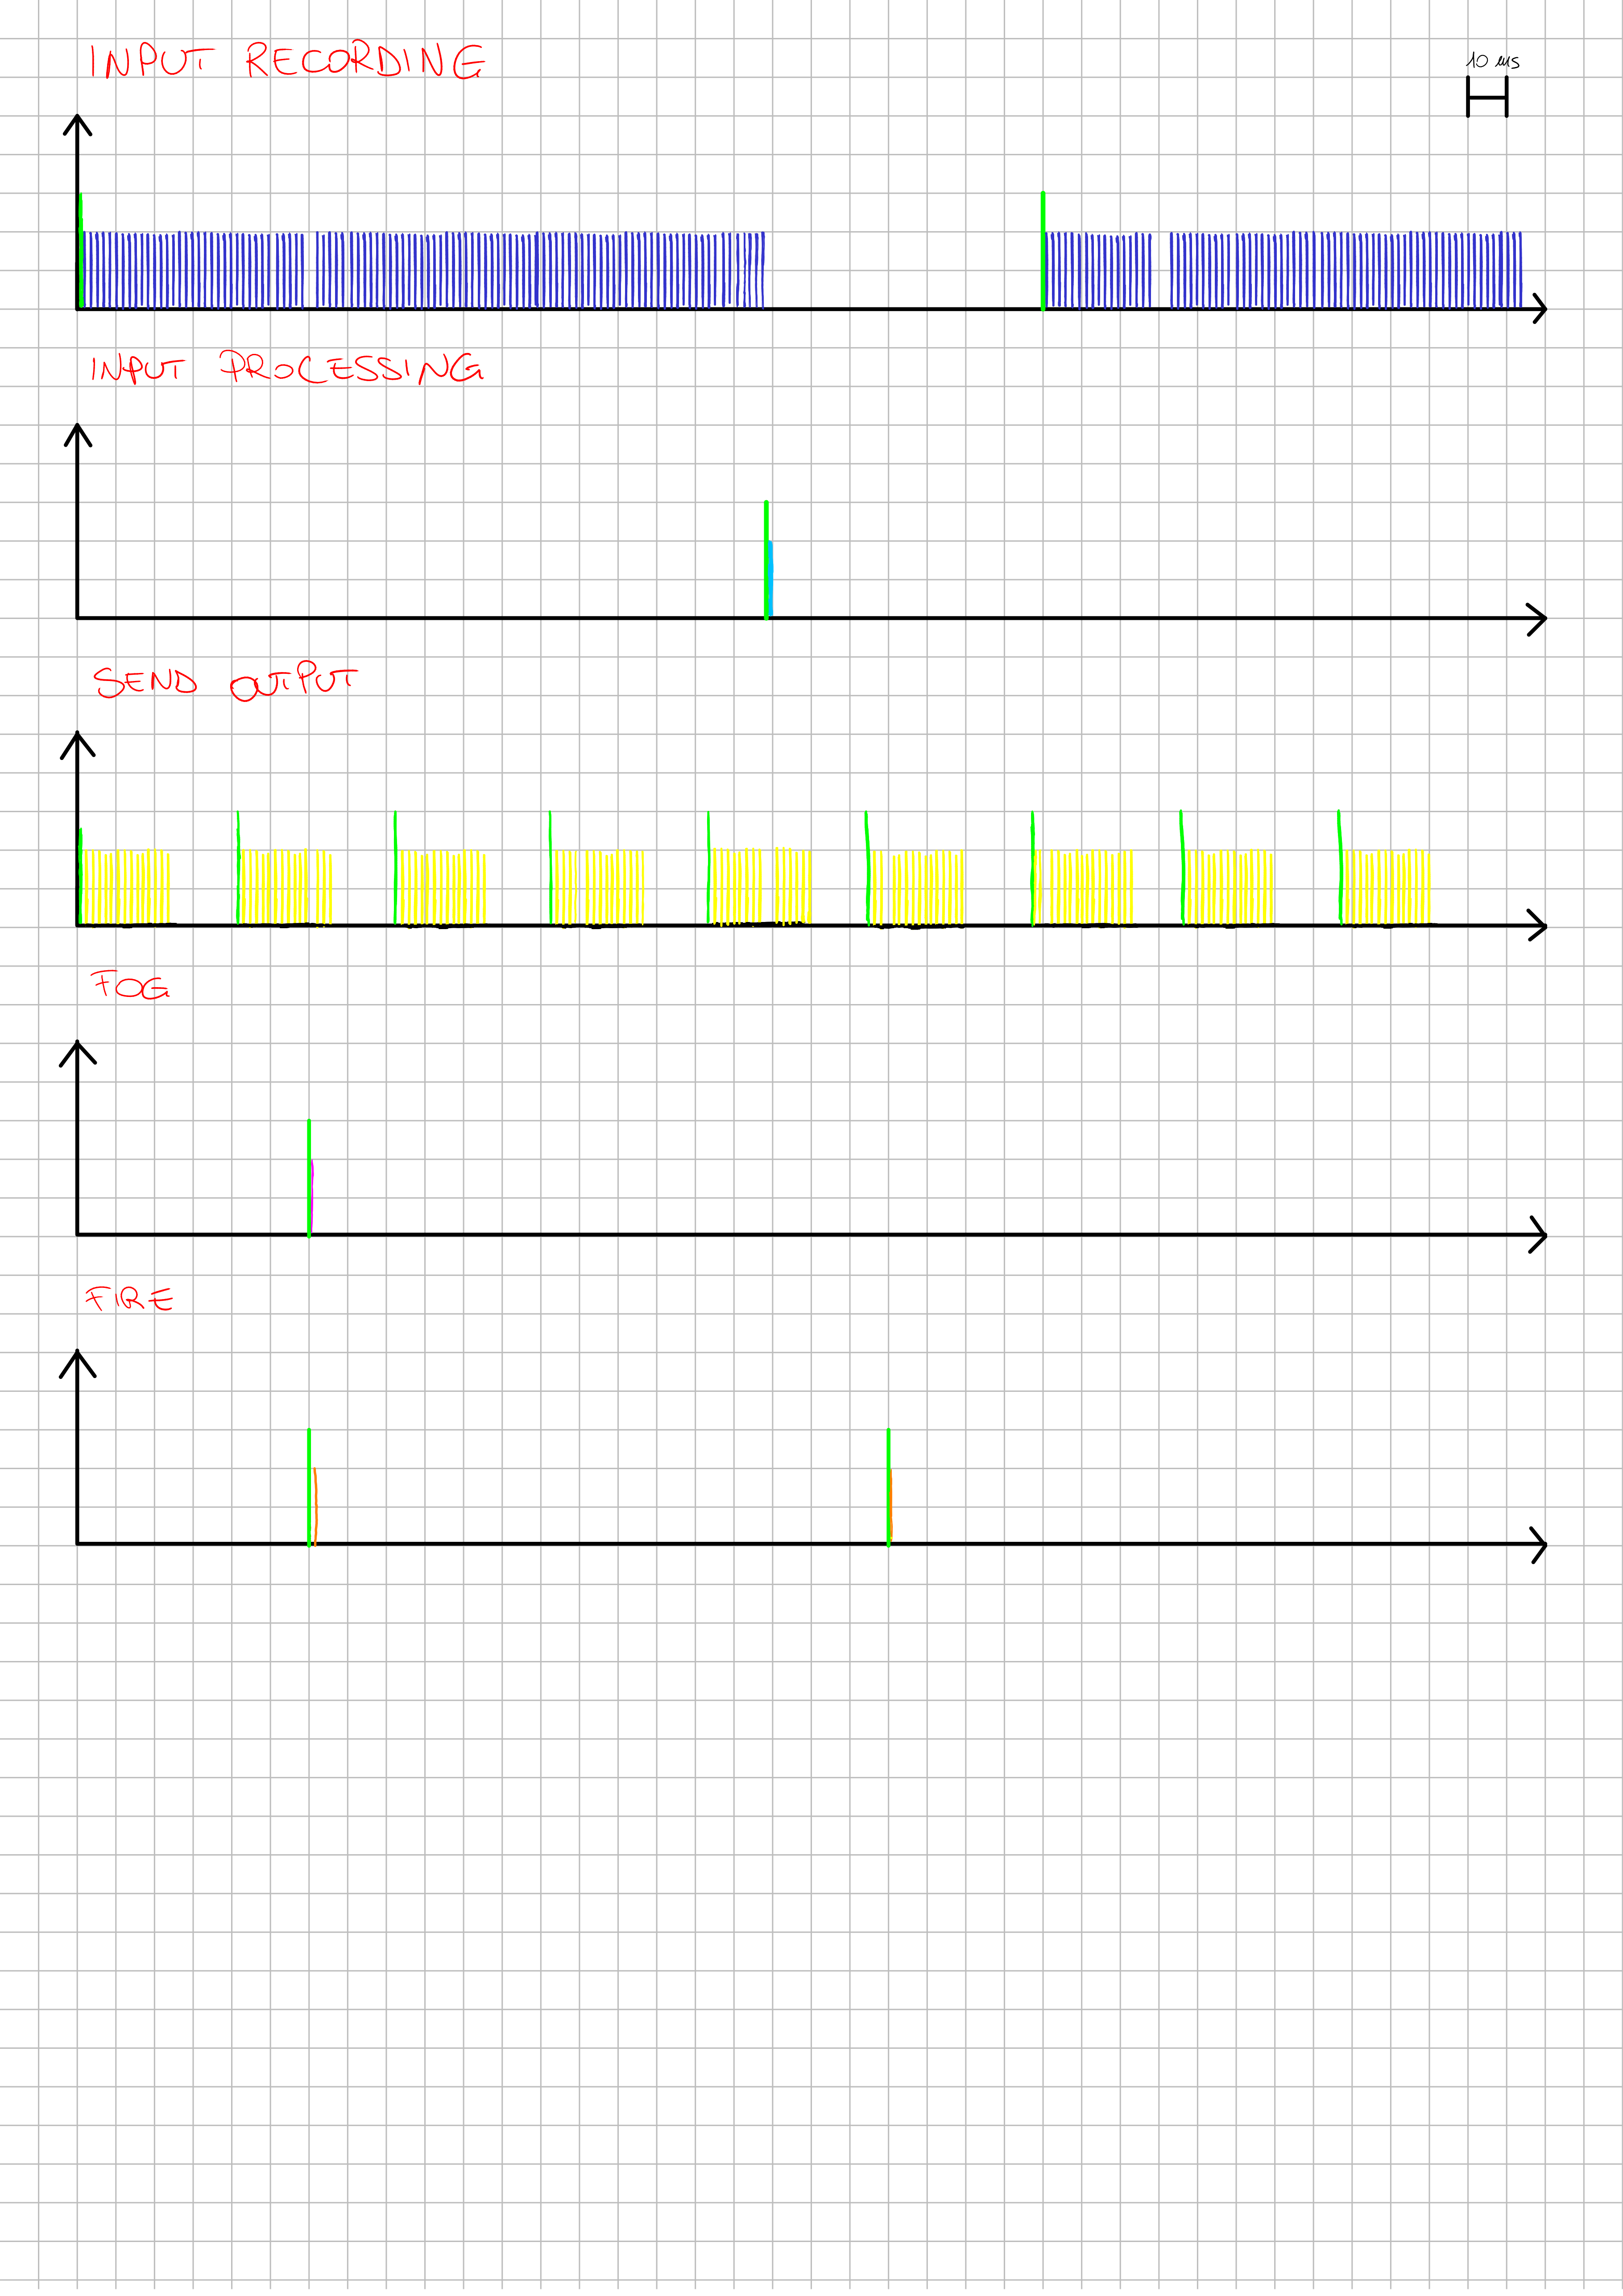 INPUT RECORDING
10 ms
INPUT PROCESSING
SEND OUTPUT
FOG
FIRE